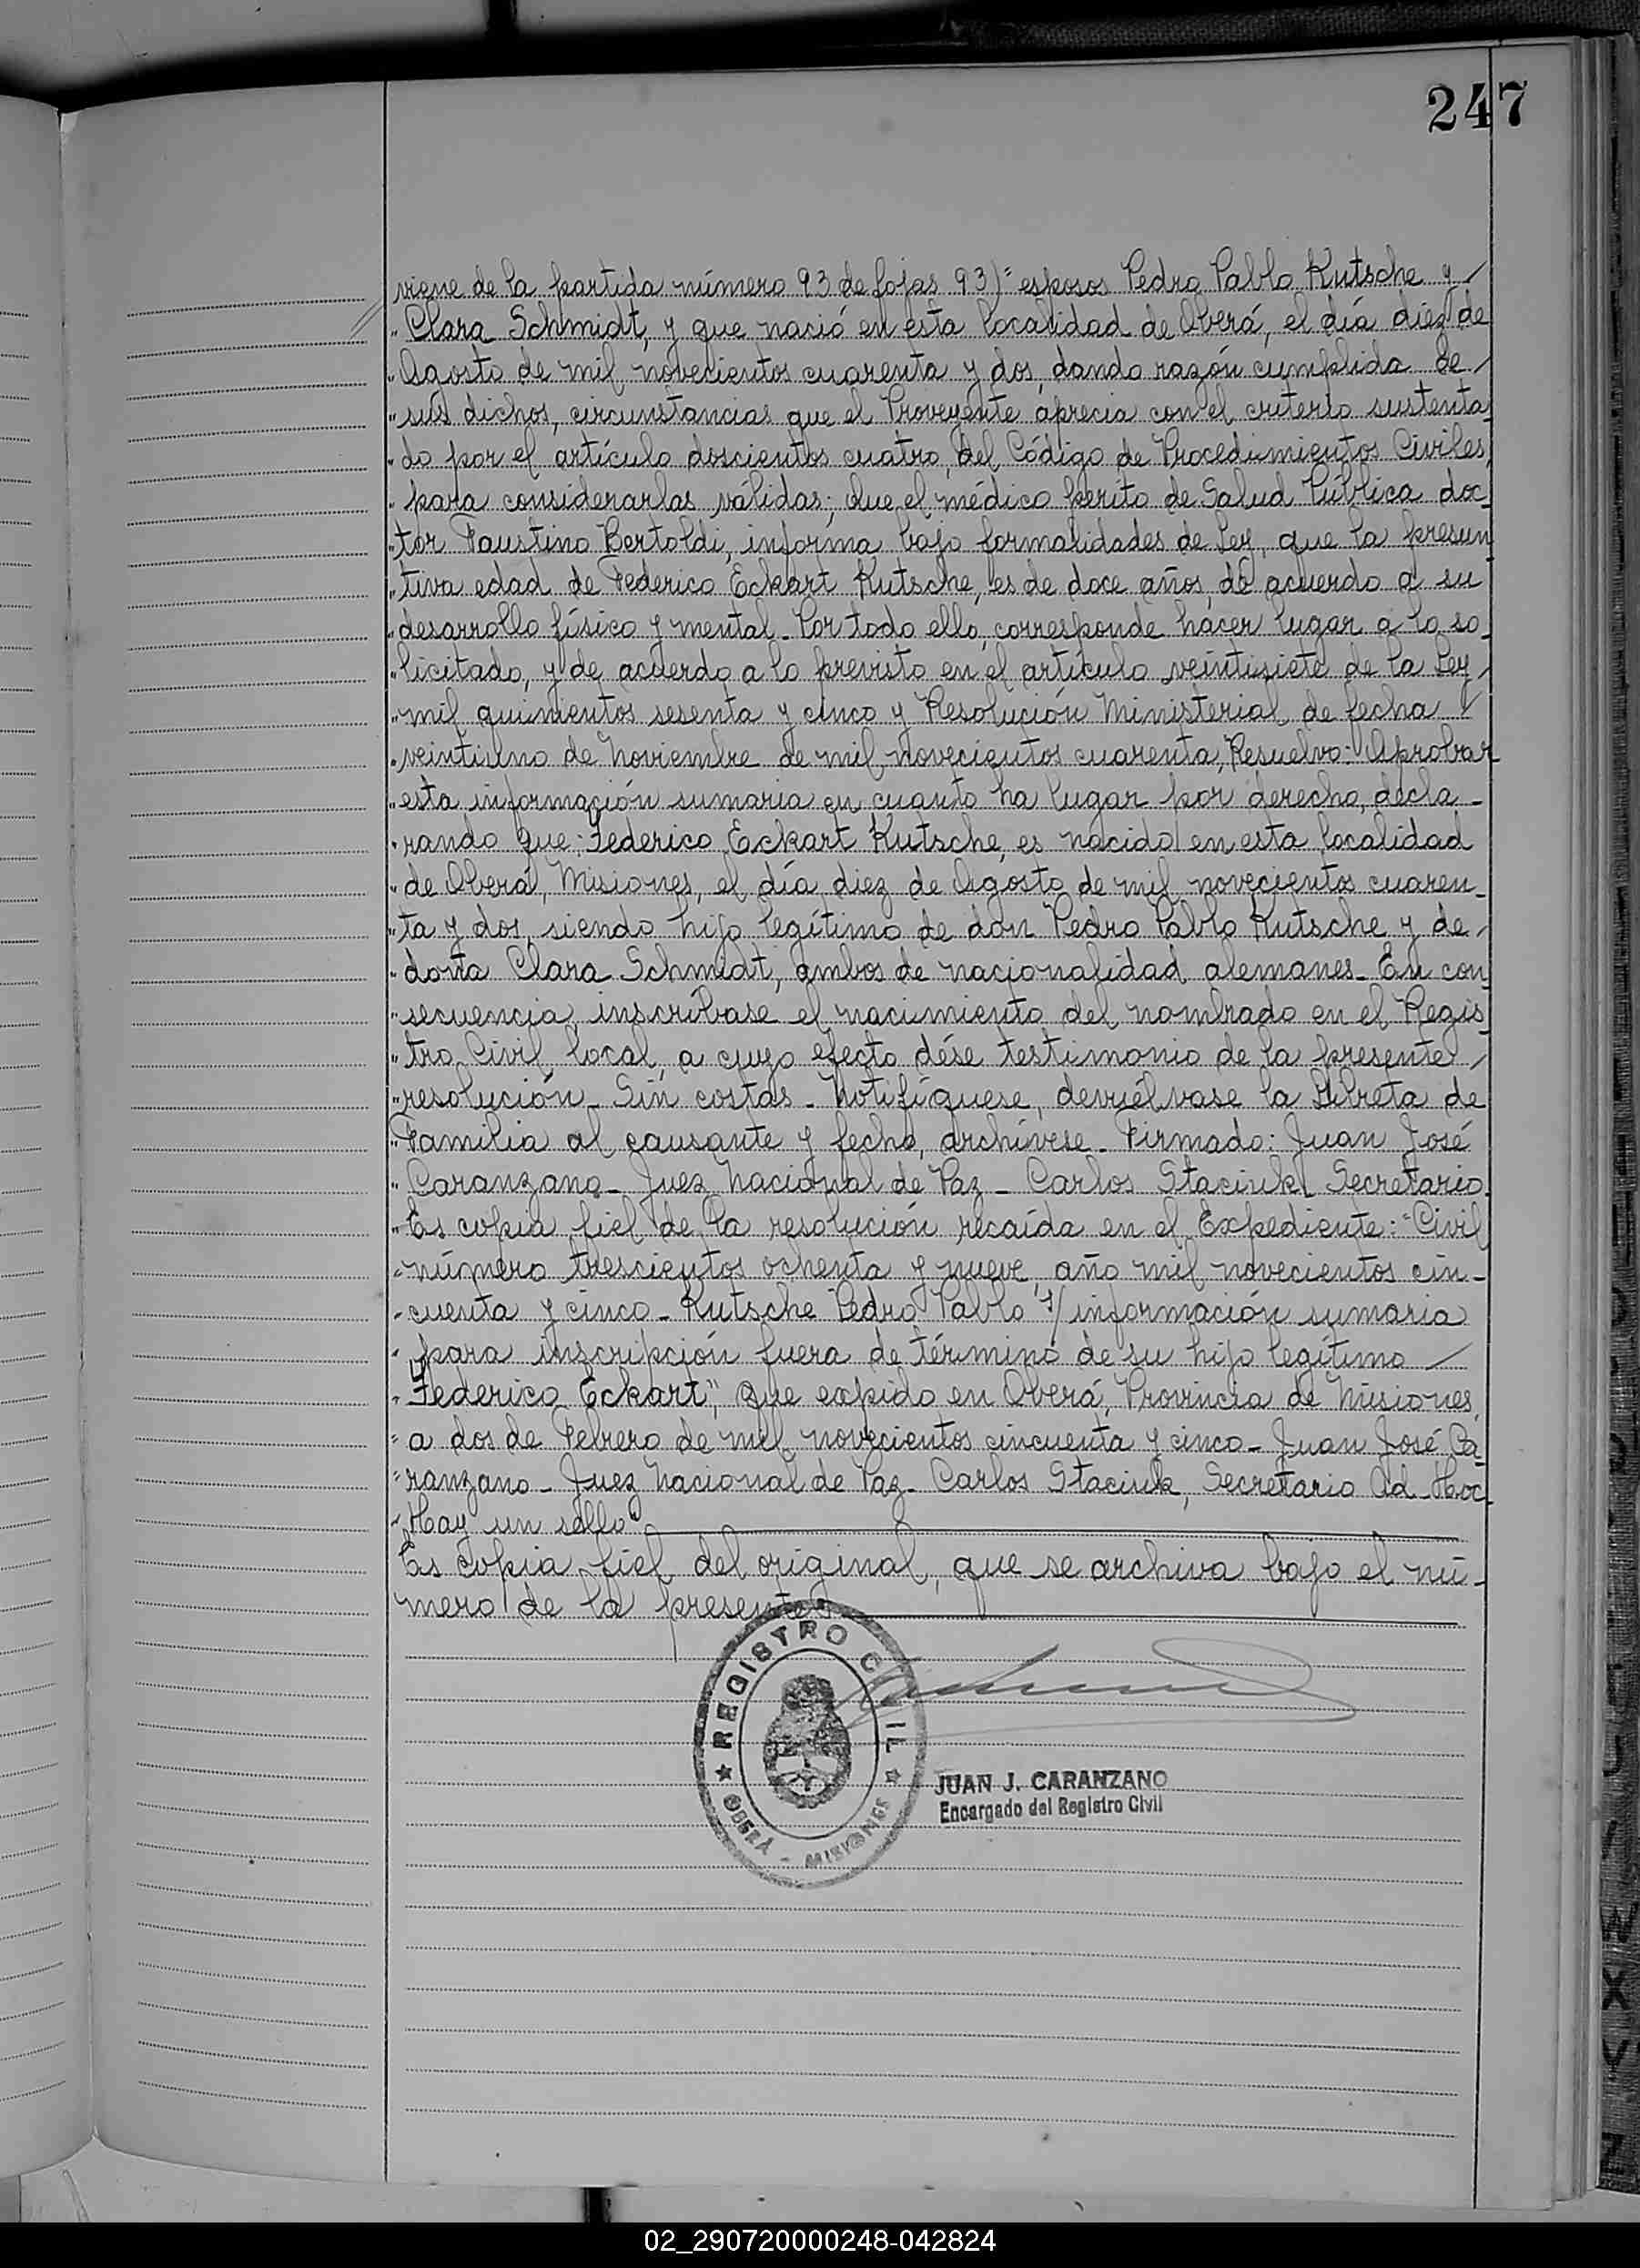 247
viene de la partida número 93 de fojas 93)" esposos Pedro Pablo Kutsche y /
" Clara Schmidt, y que nació en esta localidad de Oberá, el día diez de
" Agosto de mil novecientos cuarenta y dos, dando razón cumplida de /
" sus dichos, circunstancias que el Proveyente aprecia con el criterio sustenta
" do por el artículo doscientos cuatro, del Código de Procedimientos Civiles,
" para considerarlas válidas; Que el médico perito de Salud Pública doc-
" tor Faustino Bertoldi, informa bajo formalidades de Ley, que la presun
" tiva edad de Federico Eckart Kutsche, es de doce años, de acuerdo a su
" desarrollo físico y mental_ Por todo ello, corresponde hacer lugar a lo so_
" licitado, y de acuerdo a lo previsto en el artículo veintisiete de la Ley /
" mil quinientos sesenta y cinco y Resolución Ministerial de fecha /
" veintiuno de Noviembre de mil novecientos cuarenta, Resuelvo: Aprobar
" esta información sumaria en cuanto ha lugar por derecho, decla_
" rando que: Federico Eckart Kutsche, es nacido en esta localidad
" de Oberá, Misiones, el día diez de Agosto de mil novecientos cuaren_
" ta y dos, siendo hijo legítimo de don Pedro Pablo Kutsche y de /
" doña Clara Schmidt, ambos de nacionalidad alemanes_ En con
" secuencia, inscríbase el nacimiento del nombrado en el Regis
" tro Civil local, a cuyo efecto dése testimonio de la presente /
" resolución_ Sin costas_ Notifíquese, devuélvase la Libreta de
" Familia al causante y fecho, archívese_ Firmado: Juan José
" Caranzano_ Juez Nacional de Paz_ Carlos Staciuk_ Secretario_
" Es copia fiel de la resolución recaída en el Expediente: "Civil
" número trescientos ochenta y nueve, año mil novecientos cin_
" cuenta y cinco_ Kutsche Pedro Pablo s/información sumaria
" para inscripción fuera de término de su hijo legítimo /
" Federico Eckart", Que expido en Oberá, Provincia de Misiones,
" a dos de Febrero de mil novecientos cincuenta y cinco_ Juan José Ca
" ranzano_ Juez Nacional de Paz_ Carlos Staciuk, Secretario Ad-Hoc_
" Hay un sello"
Es copia fiel del original, que se archiva bajo el nú-
mero de la presente
REGISTRO CIVIL
OBERÁ - MISIONES
JUAN J. CARANZANO
Encargado del Registro Civil
02_290720000248-042824